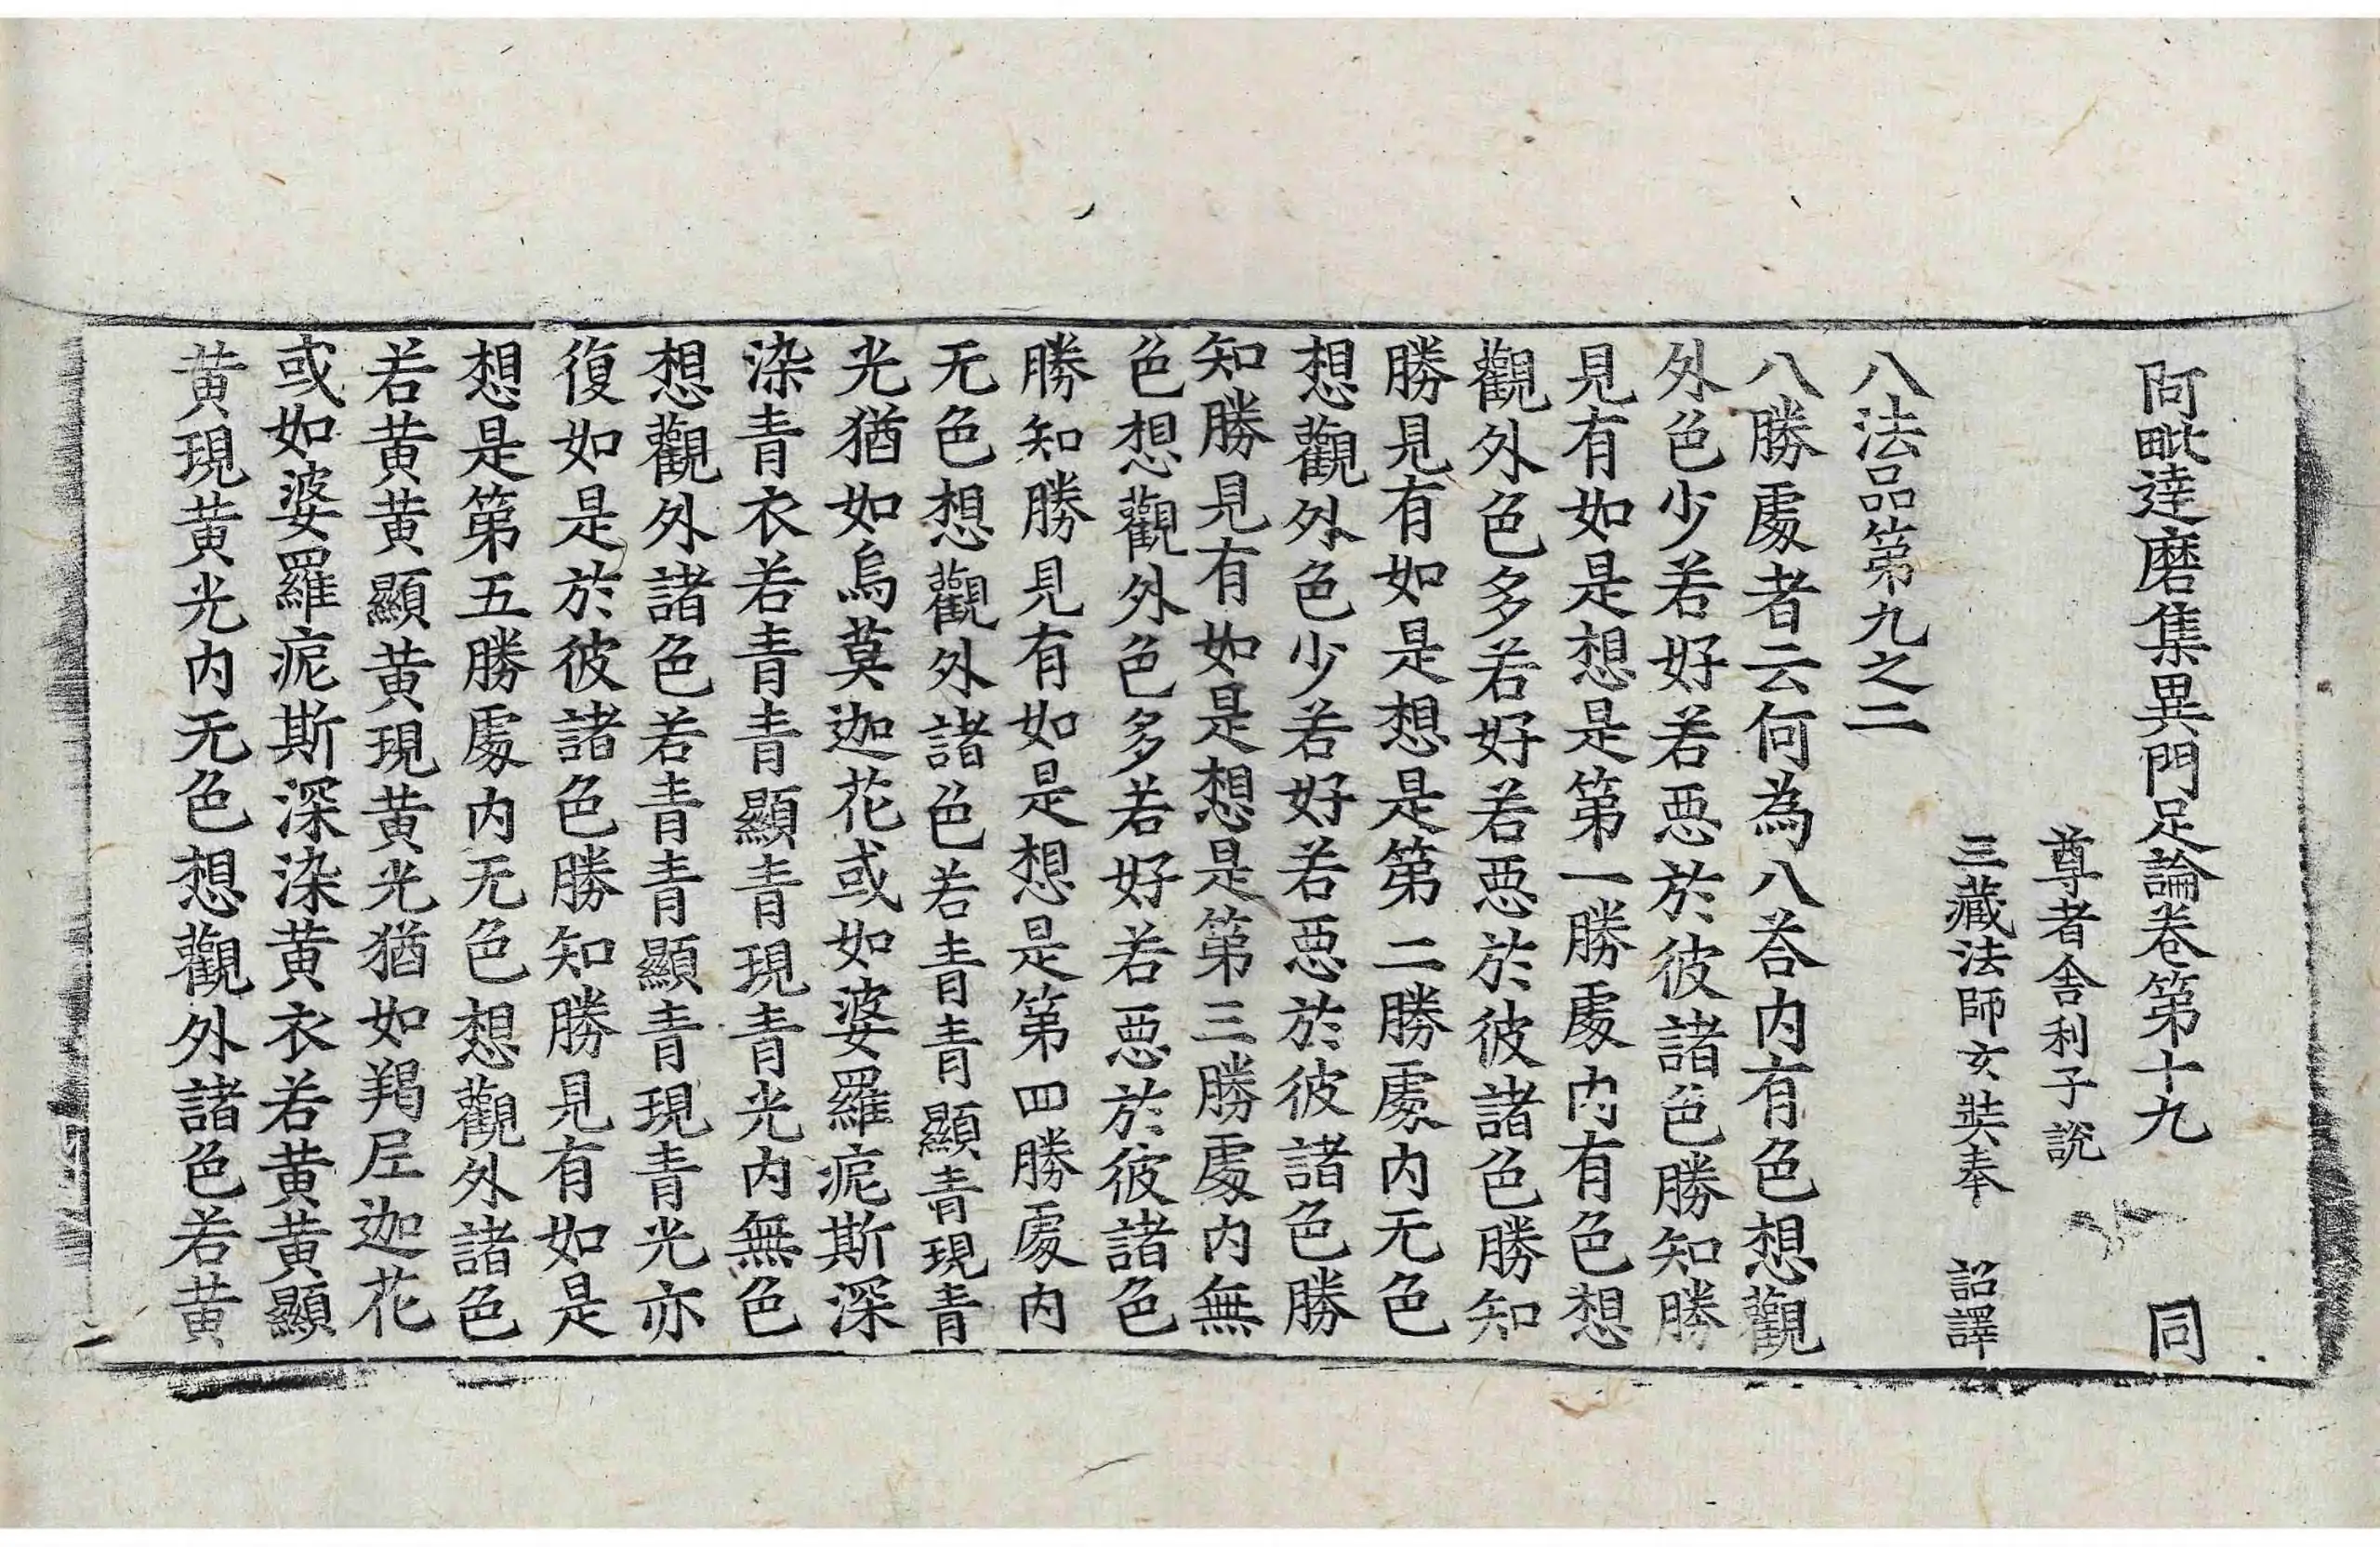 阿毗達磨集異門足論卷第十九 同
尊者舍利子說
三藏法師玄奘奉 詔譯
八法品第九之二
八勝處者云何為八荅内有色想觀
外色少若好若惡於彼諸色勝知勝
見有如是想是第一勝處内有色想
觀外色多若好若惡於彼諸色勝知
勝見有如是想是第二勝處内无色
想觀外色少若好若惡於彼諸色勝
知勝見有如是想是第三勝處内無
色想觀外色多若好若惡於彼諸色
勝知勝見有如是想是第四勝處内
无色想觀外諸色若青青顯青現青
光猶如烏莫迦花或如婆羅痆斯深
染青衣若青青青顯青現青光内無色
想觀外諸色若青青顯青現青光亦
復如是於彼諸色勝知勝見有如是
想是第五勝處内无色想觀外諸色
若黄黄顯黄現黄光猶如羯尼迦花
或如婆羅痆斯深染黄衣若黄黄顯
黄現黄光内无色想觀外諸色若黄